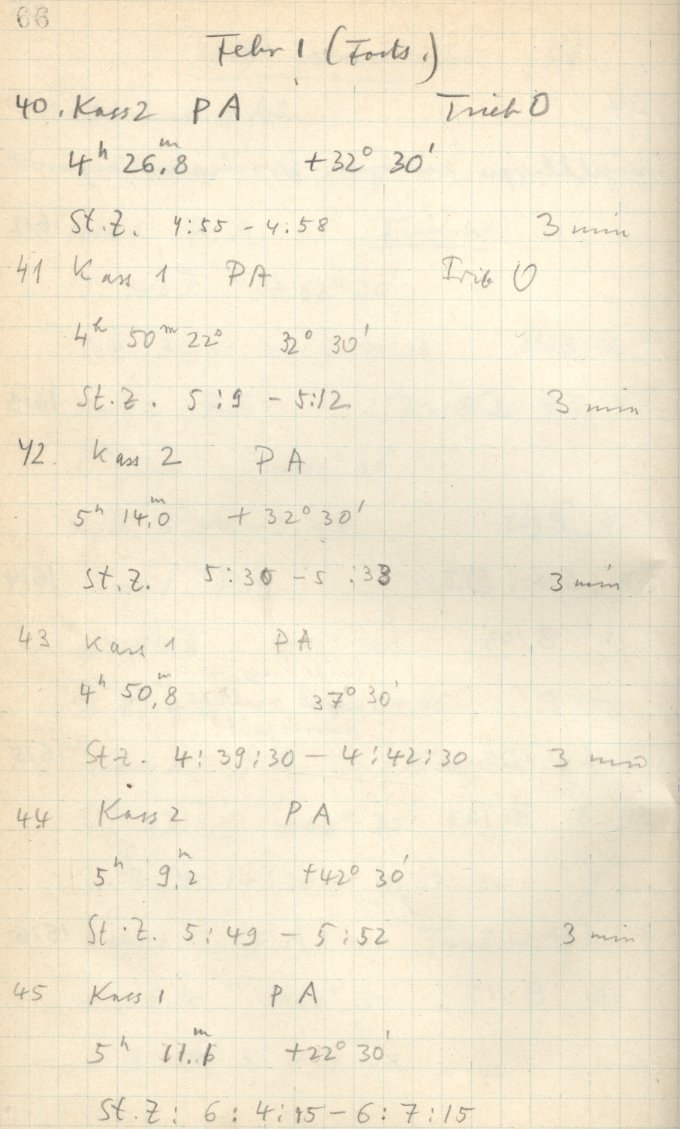 66
Febr 1 (Forts.)
40. Kass 2 P A Trieb O
4h 26,8m +32° 30'
St.Z. 4:55 - 4:58 3 min
41 Kass 1 PA Trieb O
4h 50m 22° 32° 30'
St.Z. 5:9 - 5:12 3 min
42. Kass 2 P A
5h 14,0m + 32° 30'
St.Z. 5:30 - 5:33 3 min
43 Kass 1 P A
4h 50,8m 37° 30'
St.Z. 4:39:30 - 4:42:30 3 min
44 Kass 2 P A
5h 9,2m +42° 30'
St.Z. 5:49 - 5:52 3 min
45 Kass 1 P A
5h m +22° 30'
St.Z: 6:4:15 - 6:7:15